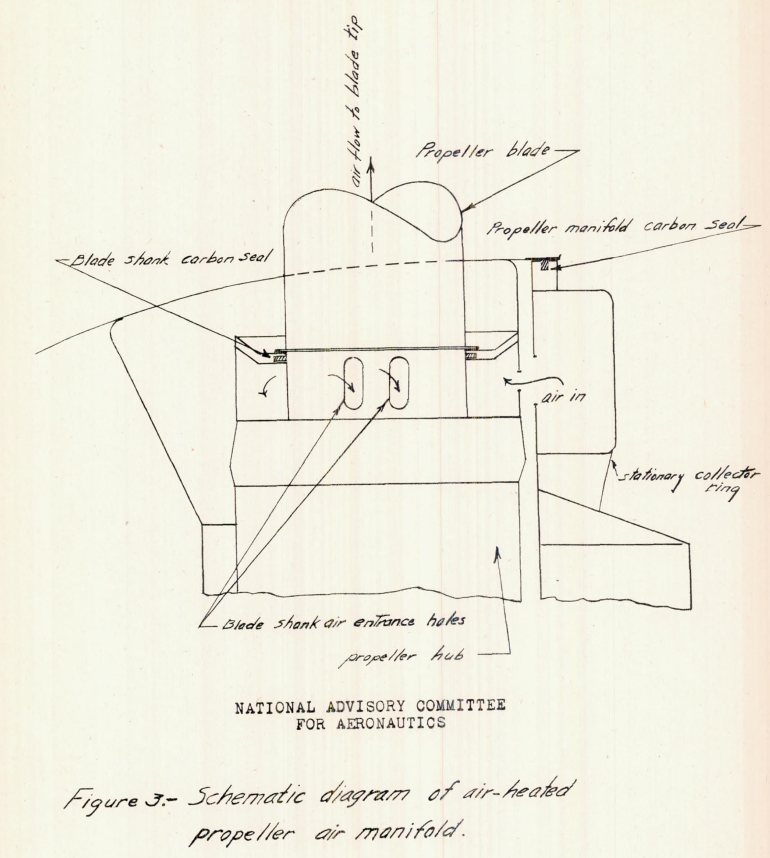 air flow to blade tip
Propeller blade
Propeller manifold carbon seal
Blade shank carbon seal
air in
stationary collector
ring
Blade shank air entrance holes
propeller hub
NATIONAL ADVISORY COMMITTEE
FOR AERONAUTICS
Figure 3.- Schematic diagram of air-heated
propeller air manifold.